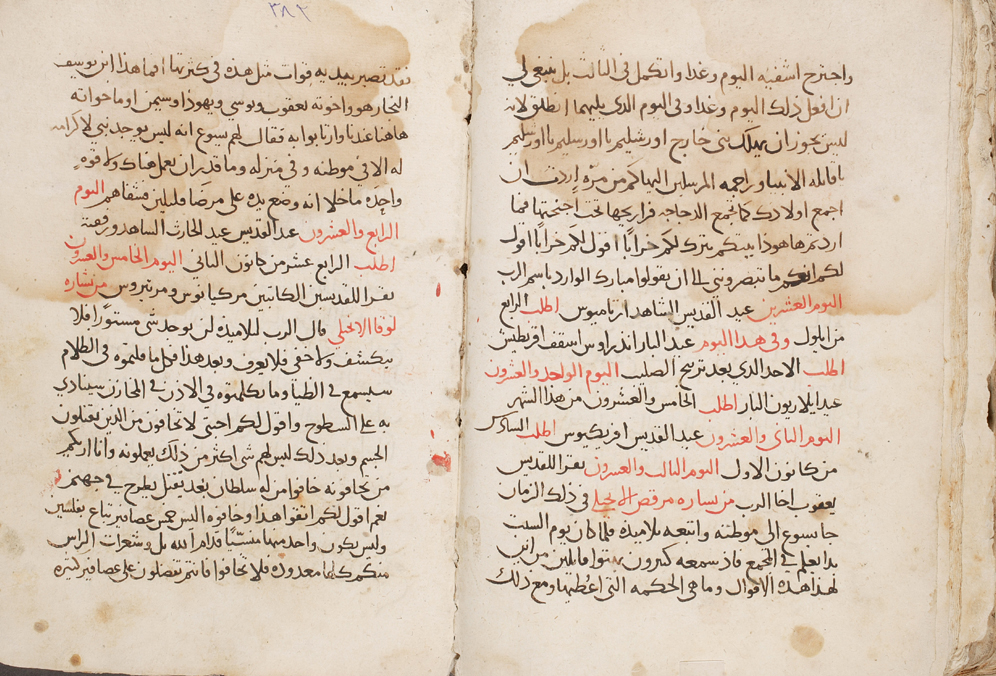 واجترح اشفيه اليوم وغدا واتكمل في الثالث بل ينبغي لي
ان افعل ذلك اليوم وغدا وفي اليوم الذي يليهما انطلق لانه
ليس يجوز ان يهلك نبي خارج اورشليم يا اورشليم يا اورشليم
يا قاتله الانبيا وراجمه المرسلين اليها كم من مره اردت ان
اجمع اولادك كما تجمع الدجاجه فراريجها تحت اجنحتها فما
اردتم هاهوذا بيتكم يترك لكم خرابا اقول لكم
لكم انكم ما تبصروني الى ان يقولوا مبارك الوارد باسم الرب
اليوم العشرين عيد القديس الشاهد ارتاميوس اطلب الرابع
من ايلول وفي هذا اليوم عيد البار اندراوس اسقف اقريطش
اطلب الاحد الذي بعد تريح الصليب اليوم الواحد والعشرون
عيد ايلاريون البار اطلب الخامس والعشرون من هذا الشهر
اليوم الثاني والعشرون عيد القديس افركيوس اطلب السادس
من كانون الاول اليوم الثالث والعشرون يقرا للقديس
يعقوب اخا الرب من بشاره مرقص الانجيلي في ذلك الزمان
جا يسوع الى موطنه واتبعه تلاميذه فلما كان يوم السبت
بدا يعلم في المجمع فاذ سمعه كثيرون بهتوا قايلين من اين
لهذا هذه الاقوال وما هي الحكمه التي اعطيها ومع ذلك
٣٨٢
فقد تصير بيديه قوات مثل هذه في كثرتها افما هذا ابن يوسف
النجار هو واخوته يعقوب ويوسي ويهوذا وسيمن اوما خواته
هاهنا عندنا وارتابوا به فقال لهم يسوع انه ليس يوجد نبي لا كرامه
له الا في موطنه وفي منزله وما قدر ان يعمل هناك ولا قوه
واحده ماخلا انه وضع يده على مرضا قليلين فشفاهم اليوم
الرابع والعشرون عيد القديس عيد الحارث الشاهد ورفقته
اطلب الرابع عشر من كانون الثاني اليوم الخامس والعشرون
يقرا للقديسين الكاتبين مركيانوس ومرتيروس من بشاره
لوقا الانجيلي قال الرب لتلاميذه لن يوجد شي مستورا فلا
ينكشف ولا خفي فلا يعرف وبعد هذا فكل ما قلتموه في الظلام
سيسمع في الضيا وما تكلمتوه في الاذن في المخازن سينادي
به على السطوح واقول لكم احبتي لا تخافون من الذين يقتلون
الجسم وبعد ذلك ليس لهم شي اكثر من ذلك يعملونه وانا اريكم
من تخافونه خافوا من له سلطان بعد يقتل يطرح في جهنم
نعم اقول لكم اتقوا هذا وخافوه اليس خمس عصافير تباع بفلسين
وليس يكون واحد منها منسيا قدام الله بل وشعرات الراس
منكم كلها معدوده فلا تخافوا فانتم تفضلون على عصافير كثيره